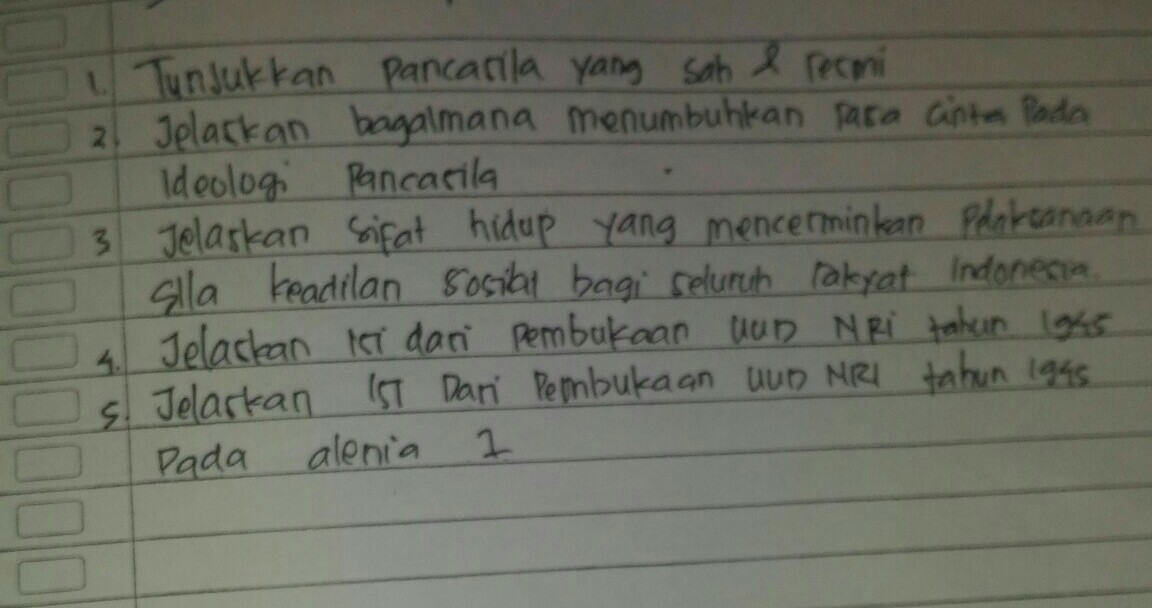 1. Tunjukkan Pancasila yang sah & resmi
2. Jelaskan bagaimana menumbuhkan rasa cinta Pada
Ideologi Pancasila
3 Jelaskan sifat hidup yang mencerminkan
Sila keadilan sosial bagi seluruh rakyat indonesia.
4. Jelaskan isi dari Pembukaan UUD NRi tahun 1945
5. Jelaskan isi Dari Pembukaan UUD NRI tahun 1945
Pada alenia 1